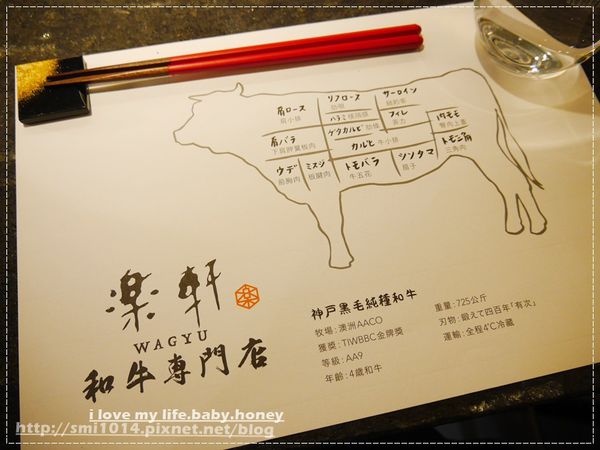 肩ロース
肩小排
リブロース
肋眼
サーロイン
紐約客
ハラミ 橫隔膜
フィレ
菲力
内モモ
臀肉上蓋
肩バラ
下肩胛翼板肉
ゲタカルビ 肋條
カルビ 牛小排
トモ三角
三角肉
ウデ
前胸肉
ミスジ
板腱肉
トモバラ
牛五花
シンタマ
腿子
楽軒
WAGYU
和牛專門店
神戸黒毛純種和牛
牧場：澳洲AACO
獲獎：TIWBBC金牌獎
等級：AA9
年齡：4歲和牛
重量：725公斤
刃物：鍛えて四百年「有次」
運輸：全程4℃冷藏
i love my life.baby.honey
http://smi1014.pixnet.net/blog